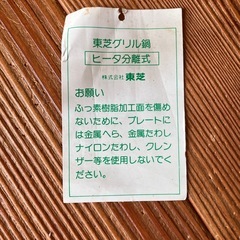 東芝グリル鍋
ヒータ分離式
株式会社 東芝
お願い
ふっ素樹脂加工面を傷め
ないために、プレートに
は金属へら、金属たわし
ナイロンたわし、クレン
ザー等を使用しないでく
ださい。